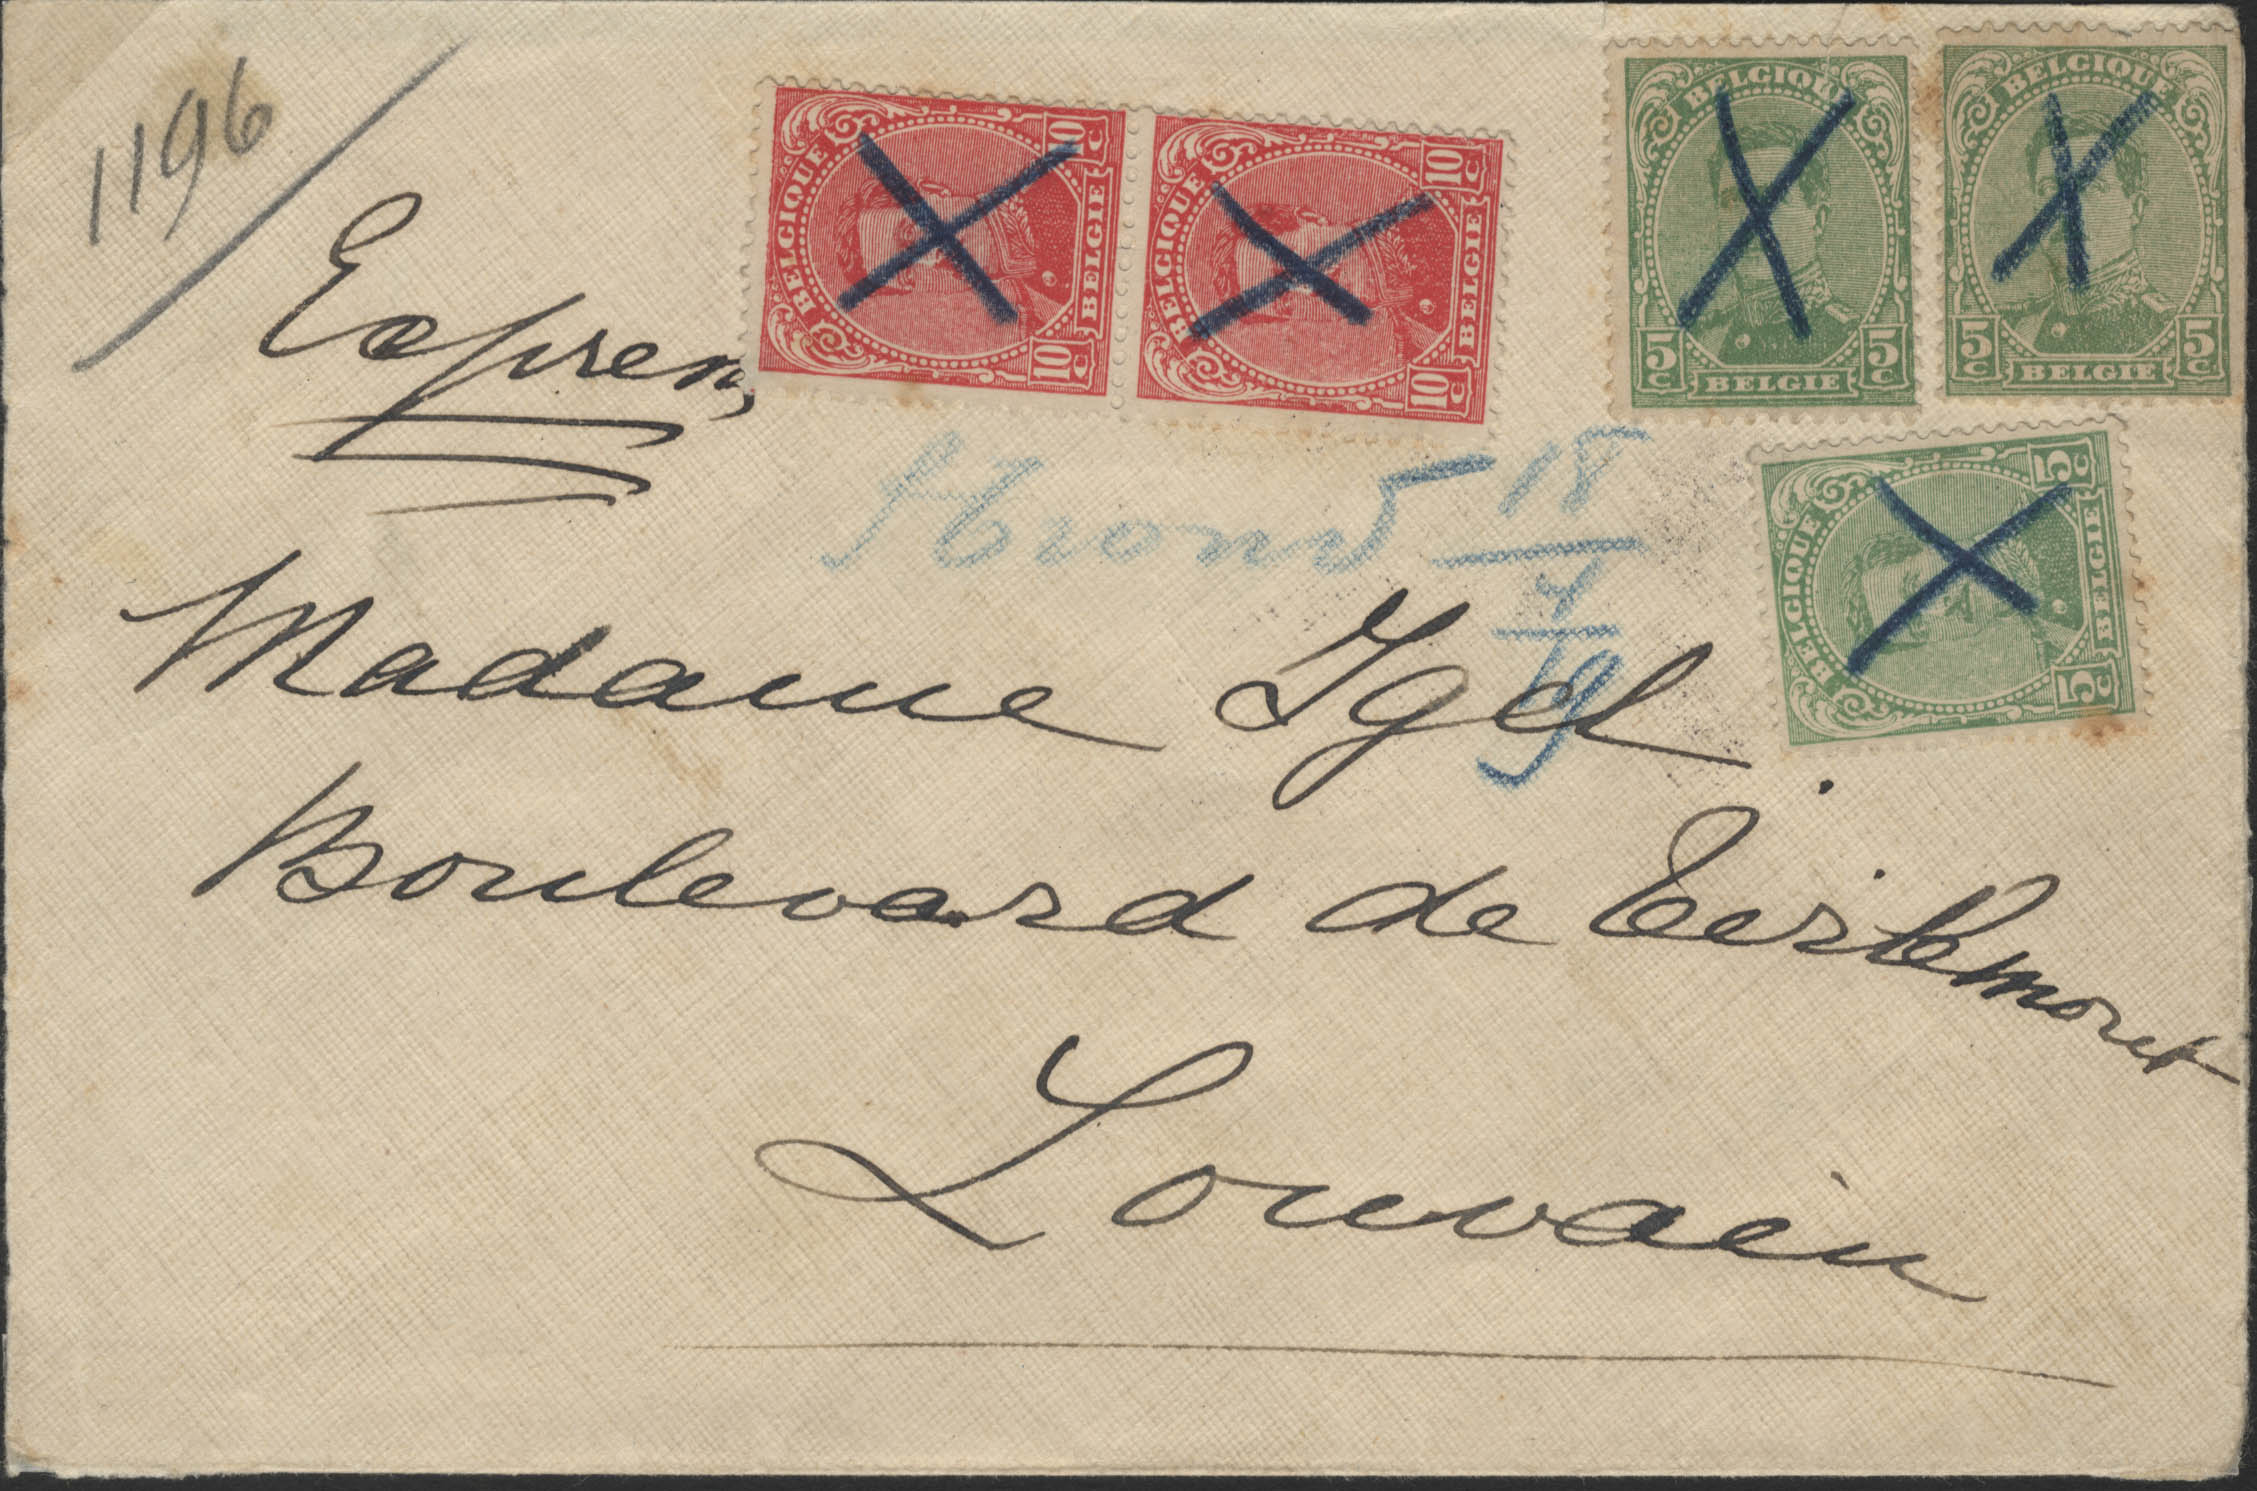 1196
Expres
BELGIQUE 10 C 10 C BELGIE
BELGIQUE 10 C 10 C BELGIE
BELGIQUE 5 C 5 C BELGIE
BELGIQUE 5 C 5 C BELGIE
BELGIQUE 5 C 5 C BELGIE
18/4/19
Madame Igel.
Boulevard de Tirlemont
Louvain